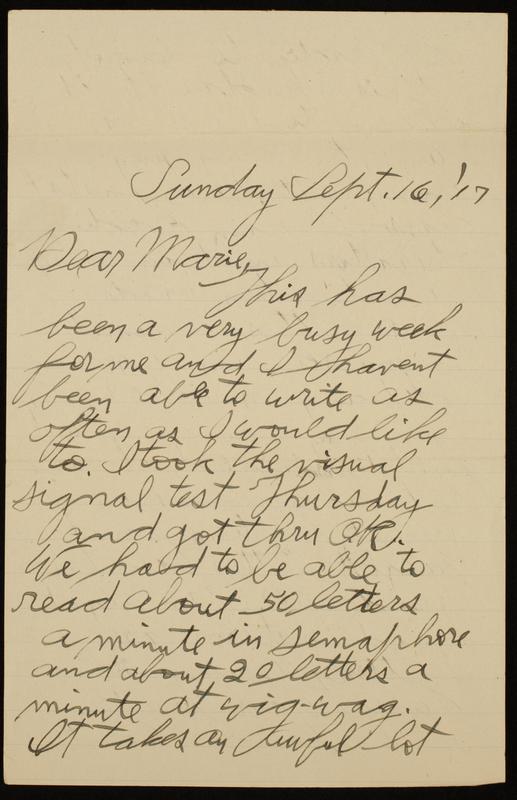 Sunday Sept. 16, '17
Dear Marie,
This has
been a very busy week
for me and I havent
been able to write as
often as I would like
to. I took the visual
signal test Thursday
and got thru OK.
We had to be able to
read about 50 letters
a minute in semaphore
and about 20 letters a
minute at wig-wag.
It takes an awful lot